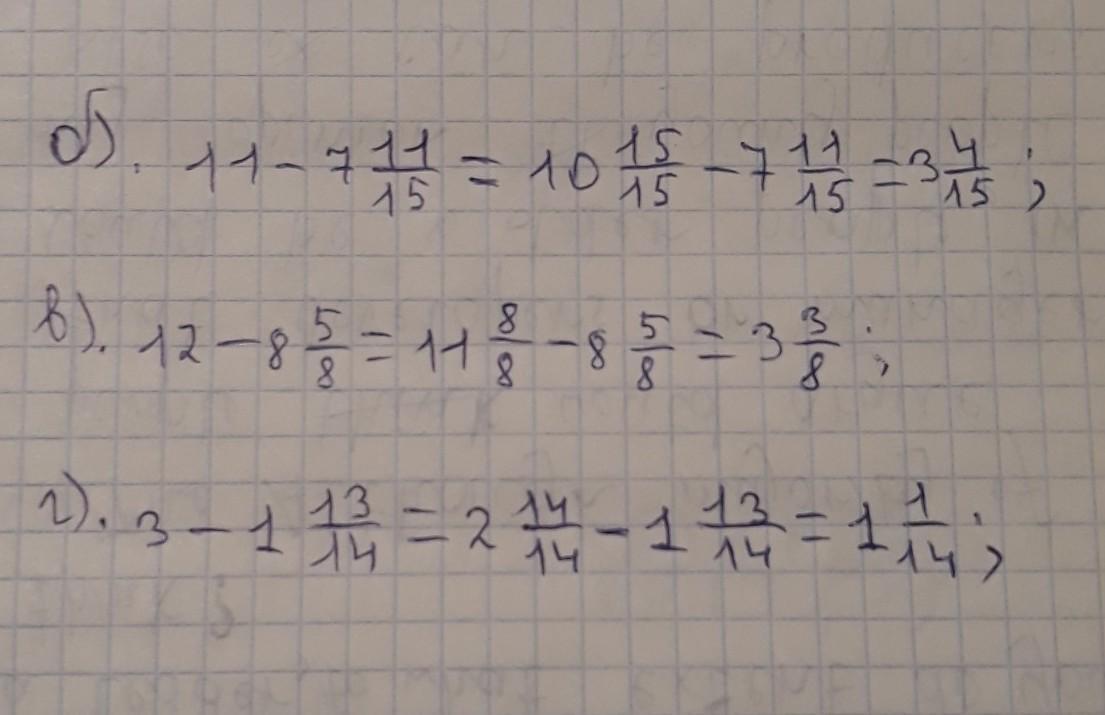 б). 11 - 7 11/15 = 10 15/15 - 7 11/15 = 3 4/15 ;
в). 12 - 8 5/8 = 11 8/8 - 8 5/8 = 3 3/8 ;
г). 3 - 1 13/14 = 2 14/14 - 1 13/14 = 1 1/14 ;